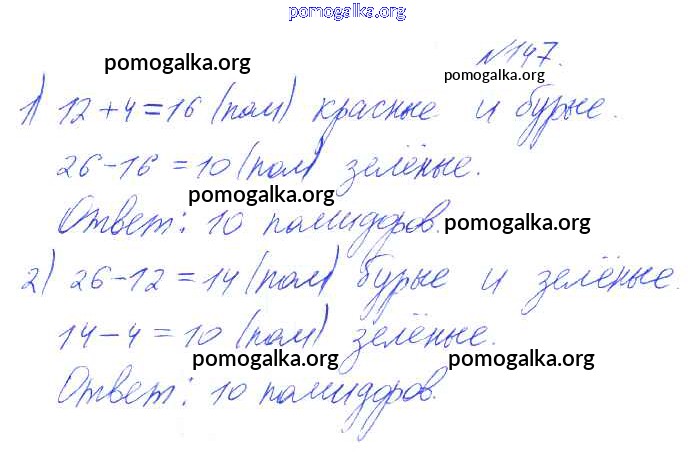 pomogalka.org
№147.
pomogalka.org
pomogalka.org
1) 12+4=16 (пом) красные и бурые.
26-16=10 (пом) зелёные.
pomogalka.org
Ответ: 10 помидоров.
pomogalka.org
2) 26-12=14 (пом) бурые и зелёные.
14-4=10 (пом) зелёные.
pomogalka.org pomogalka.org
Ответ: 10 помидоров.